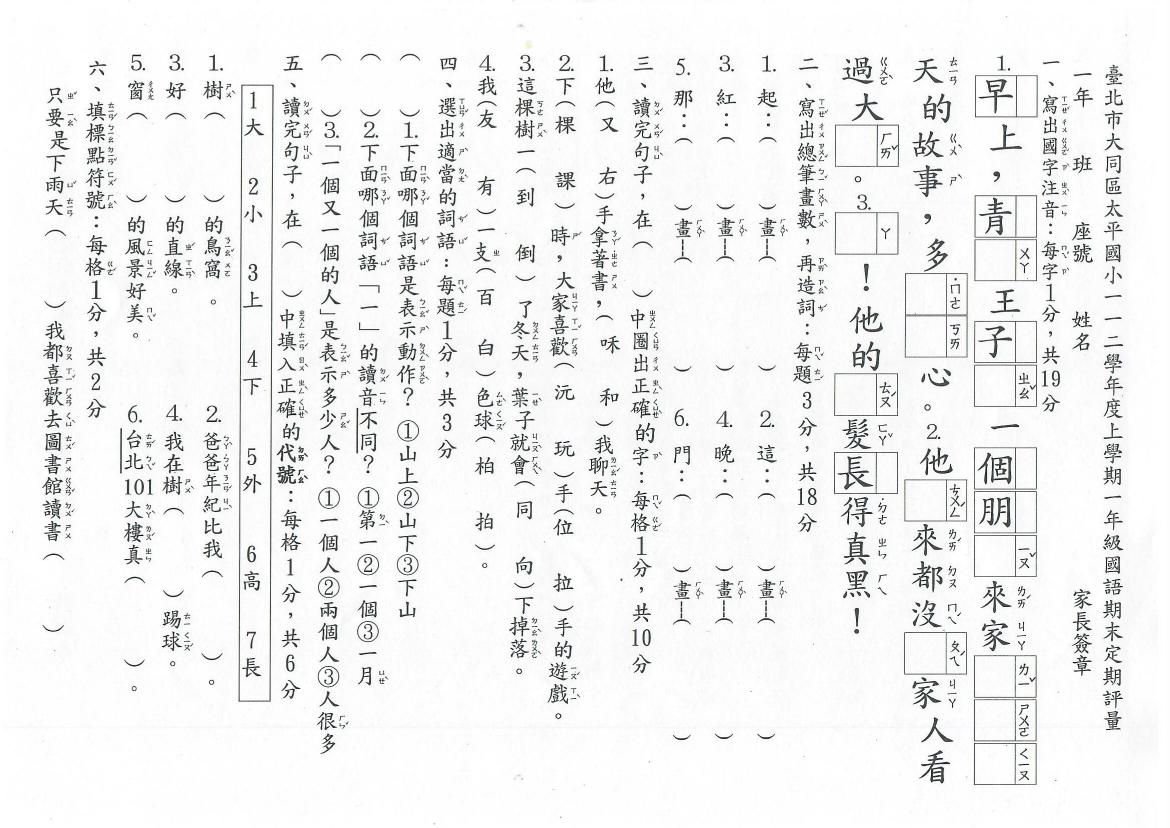 臺北市大同區太平國小一一二學年度上學期一年級國語期末定期評量
一年　班　座號　姓名　家長簽章
一、寫出國字注音：每字1分，共19分
1.早上，青ㄨㄚˊ王子ㄓㄠˇ一個朋ㄧㄡˇ來家ㄌㄧˇㄕㄨㄛㄑㄧㄡ
天的故事，多˙ㄇㄜㄎㄞ心。2.他ㄘㄨㄥˊ來都沒ㄆㄟˊ家人看
過大ㄏㄞˇ。3.ㄚ！他的ㄊㄡˊ髮長得真黑！
二、寫出總筆畫數，再造詞：每題3分，共18分
1.起：（　）畫—（　）2.這：（　）畫—（　）
3.紅：（　）畫—（　）4.晚：（　）畫—（　）
5.那：（　）畫—（　）6.門：（　）畫—（　）
三、讀完句子，在（　）中圈出正確的字：每格1分，共10分
1.他（又　右）手拿著書，（咊　和）我聊天。
2.下（棵　課）時，大家喜歡（沅　玩）手（位　拉）手的遊戲。
3.這棵樹一（到　倒）了冬天，葉子就會（同　向）下掉落。
4.我（友　有）一支（百　白）色球（柏　拍）。
四、選出適當的詞語：每題1分，共3分
（　）1.下面哪個詞語是表示動作？①山上②山下③下山
（　）2.下面哪個詞語「一」的讀音不同？①第一②一個③一月
（　）3.「一個又一個的人」是表示多少人？①一個人②兩個人③人很多
五、讀完句子，在（　）中填入正確的代號：每格1分，共6分
1大　2小　3上　4下　5外　6高　7長
1.樹（　）的鳥窩。　2.爸爸年紀比我（　）。
3.好（　）的直線。　4.我在樹（　）踢球。
5.窗（　）的風景好美。　6.台北101大樓真（　）。
六、填標點符號：每格1分，共2分
只要是下雨天（　）我都喜歡去圖書館讀書（　）